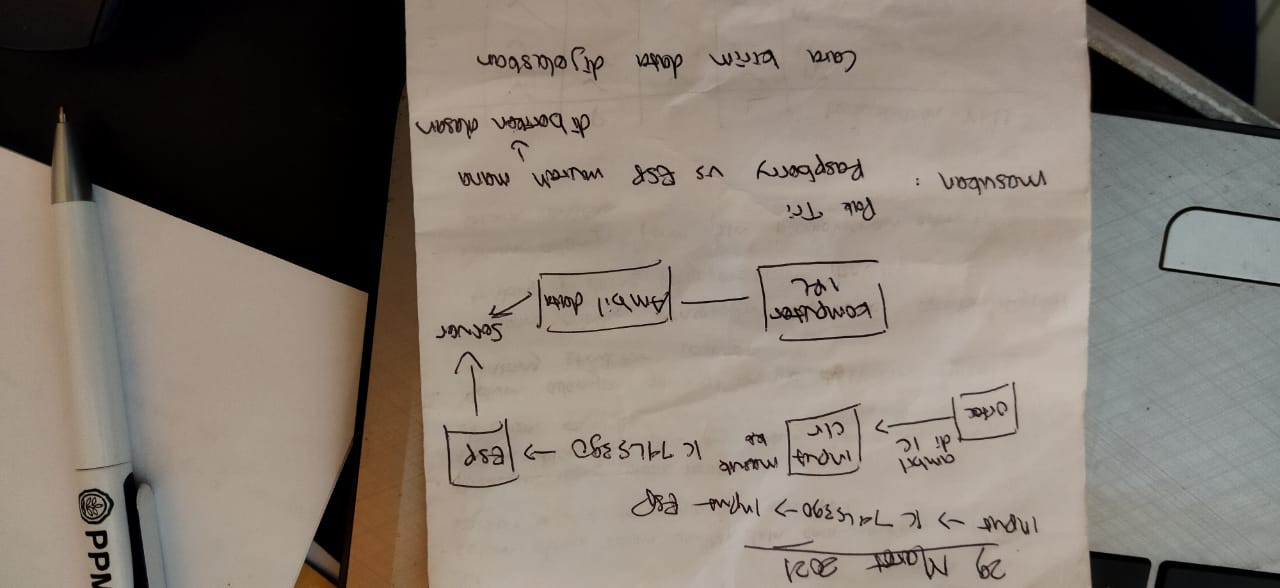 29 Maret 2021
Input → IC 74LS390 → Input ESP
ambil di IC
Ortec
input clr
masuk ke
IC 74LS390 →
ESP
Server
Komputer
Ambil data
Pak Tri
masukan :
Raspberry vs ESP murah mana
diberikan alasan
Cara kirim data dijelaskan
PPM